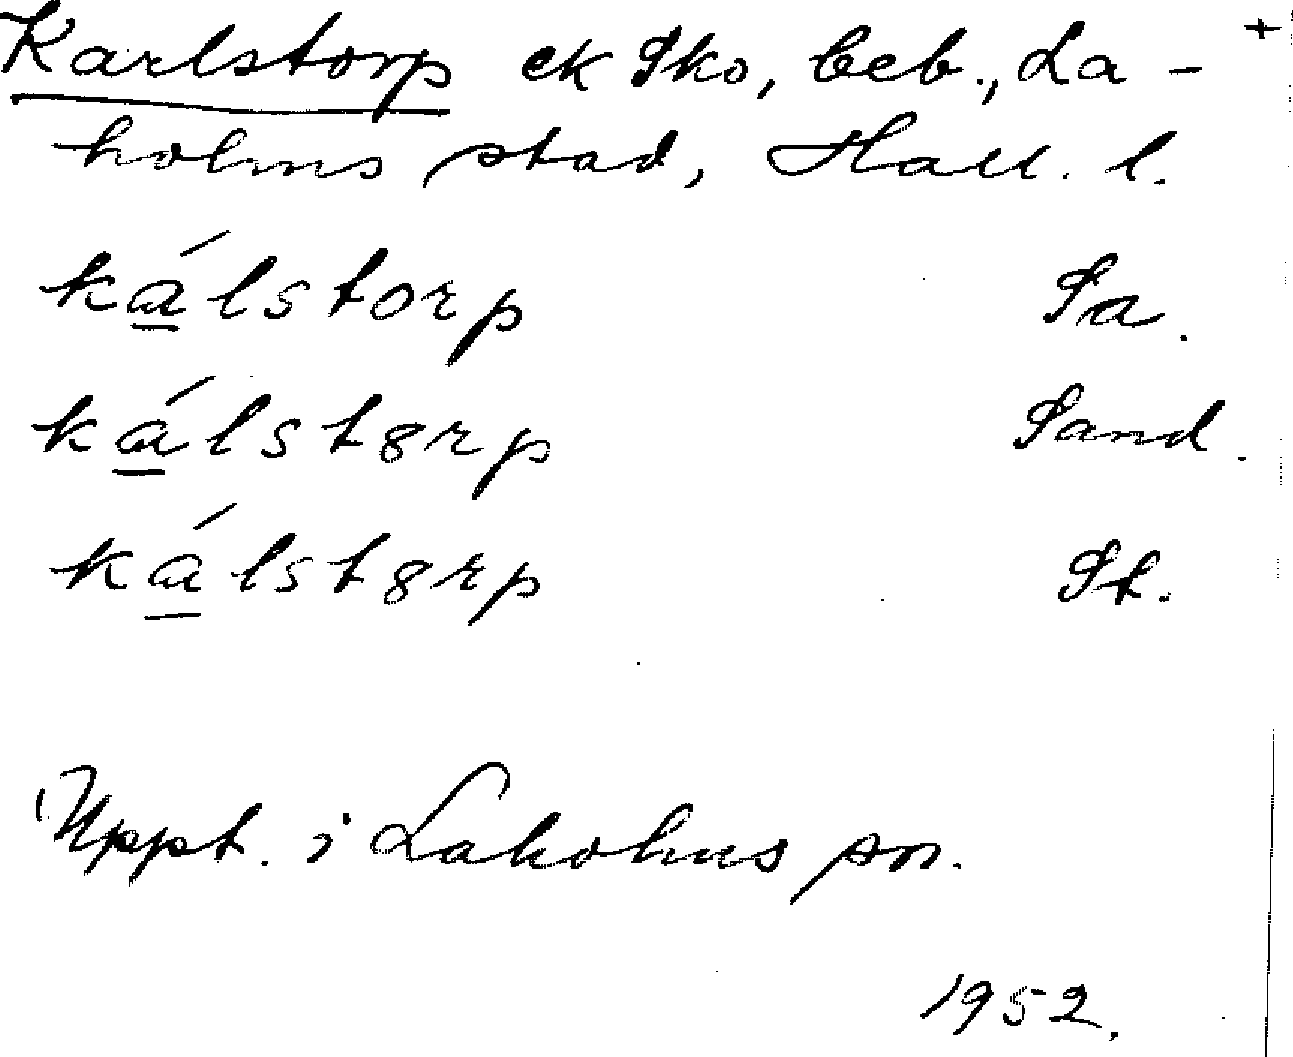 Karlstorp ek Sko, beb., La- +
holms stad, Hall. l.
ká̱lstorp Sa.
ká̱lst8rp Sand.
ká̱lst8rp St.
Uppt. i Laholms sn.
1952.